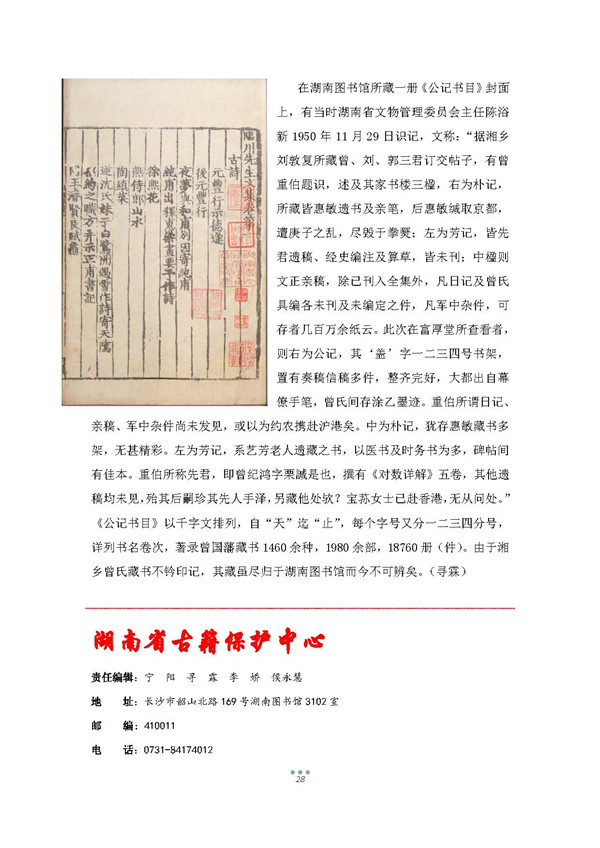 臨川先生文集卷第一
古詩
元豐行示德逢
後元豐行
夜夢與和甫別因寄純甫
純甫出釋惠崇畫要予作詩
徐熙花
燕侍郎山水
陶縝菜
在湖南图书馆所藏一册《公记书目》封面
上，有当时湖南省文物管理委员会主任陈浴
新 1950 年 11 月 29 日识记，文称：“据湘乡
刘敦复所藏曾、刘、郭三君订交帖子，有曾
重伯题识，述及其家书楼三楹，右为朴记，
所藏皆惠敏遗书及亲笔，后惠敏缄取京都，
遭庚子之乱，尽毁于拳燹；左为芳记，皆先
君遗稿、经史编注及算草，皆未刊；中楹则
文正亲稿，除已刊入全集外，凡日记及曾氏
具编各未刊及未编定之件，凡军中杂件，可
存者几百万余纸云。此次在富厚堂所查看者，
则右为公记，其‘盖’字一二三四号书架，
置有奏稿信稿多件，整齐完好，大都出自幕
僚手笔，曾氏间存涂乙墨迹。重伯所谓日记、
亲稿、军中杂件尚未发见，或以为约农携赴沪港矣。中为朴记，犹存惠敏藏书多
架，无甚精彩。左为芳记，系艺芳老人遗藏之书，以医书及时务书为多，碑帖间
有佳本。重伯所称先君，即曾纪鸿字栗諴是也，撰有《对数详解》五卷，其他遗
稿均未见，殆其后嗣珍其先人手泽，另藏他处欤？宝荪女士已赴香港，无从问处。”
《公记书目》以千字文排列，自“天”迄“止”，每个字号又分一二三四分号，
详列书名卷次，著录曾国藩藏书 1460 余种，1980 余部，18760 册（件）。由于湘
乡曾氏藏书不钤印记，其藏虽尽归于湖南图书馆而今不可辨矣。（寻霖）
湖南省古籍保护中心
责任编辑：宁 阳 寻 霖 李 娇 侯永慧
地 址：长沙市韶山北路 169 号湖南图书馆 3102 室
邮 编：410011
电 话：0731-84174012
28